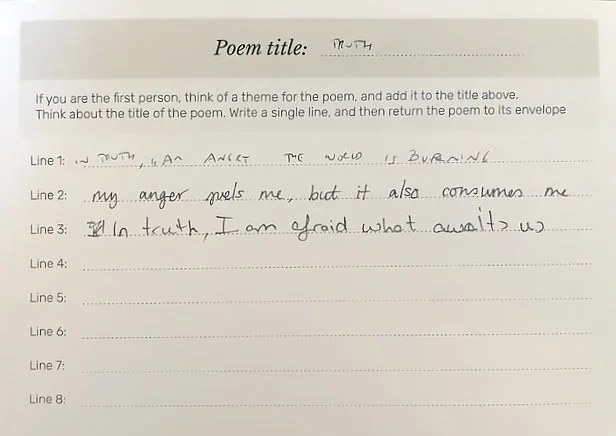 Poem title: TRUTH
If you are the first person, think of a theme for the poem, and add it to the title above.
Think about the title of the poem. Write a single line, and then return the poem to its envelope
Line 1: IN TRUTH, AM ANGRY THE WORLD IS BURNING
Line 2: my anger fuels me, but it also consumes me
Line 3: In truth, I am afraid what awaits us
Line 4:
Line 5:
Line 6:
Line 7:
Line 8: